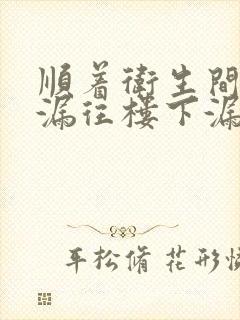 順着衛生間
漏往樓下漏
年松脩 花形懷